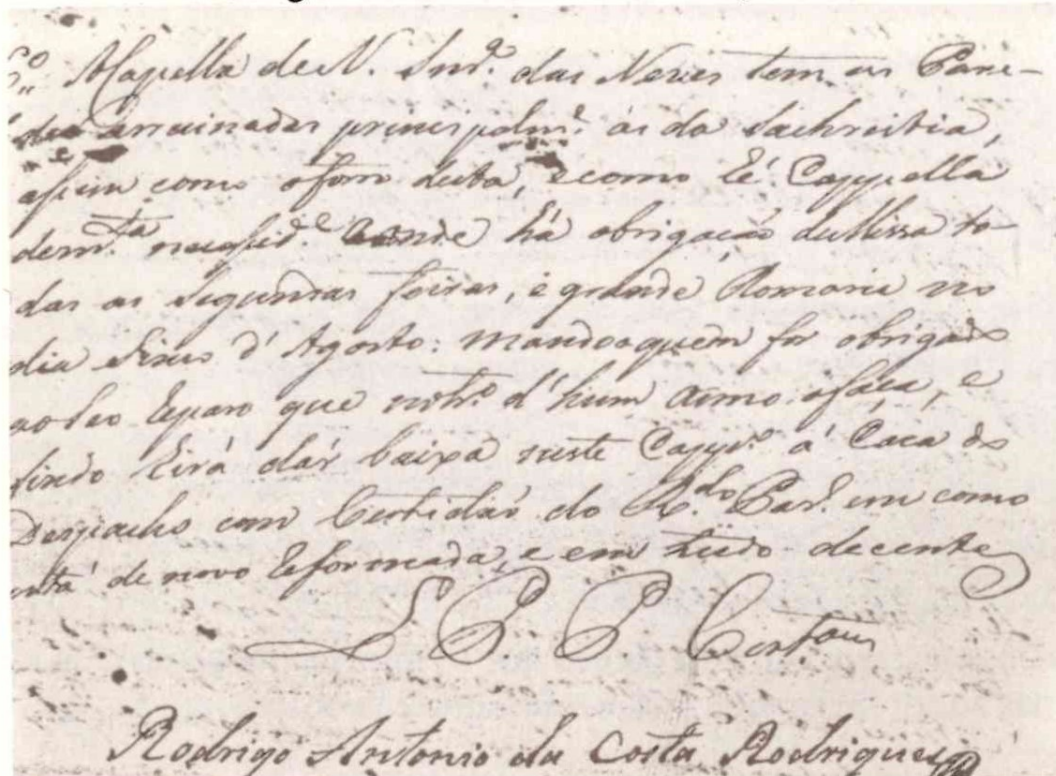 A Capella de N. Snrª. das Neves tem as Pare-
des arruinadas principalmᵉ. as da Sachristia,
assim como o forro desta, e como hé Cappella
de mᵗᵃ necessidᵉ aonde há obrigação de Missa to-
das as Segundas feiras, e grande Romaria no
dia Sinco d'Agosto: mando a quem for obrigado
ao seo reparo que no trº. d'hum anno o faça, e
findo virá dár baixa neste Cappº. á Caza do
Despacho com Certidaõ do R.ᵈᵒ Par.º em como
está de novo reformada, e em tudo decente
P. P.
Rodrigo Antonio da Costa Rodrigues